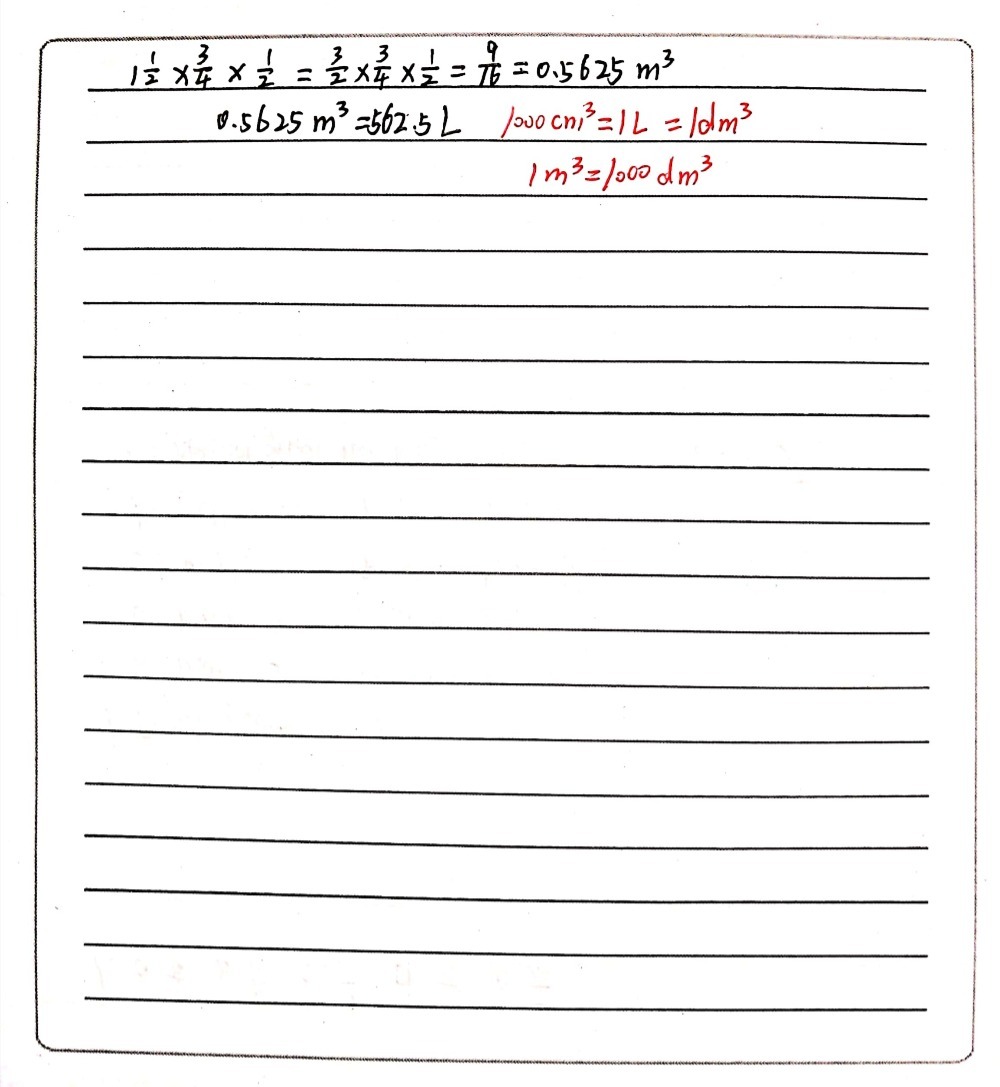 1 1/2 × 3/4 × 1/2 = 3/2 × 3/4 × 1/2 = 9/16 = 0.5625 m³
0.5625 m³ = 562.5 L 1000 cm³ = 1 L = 1dm³
1 m³ = 1000 dm³